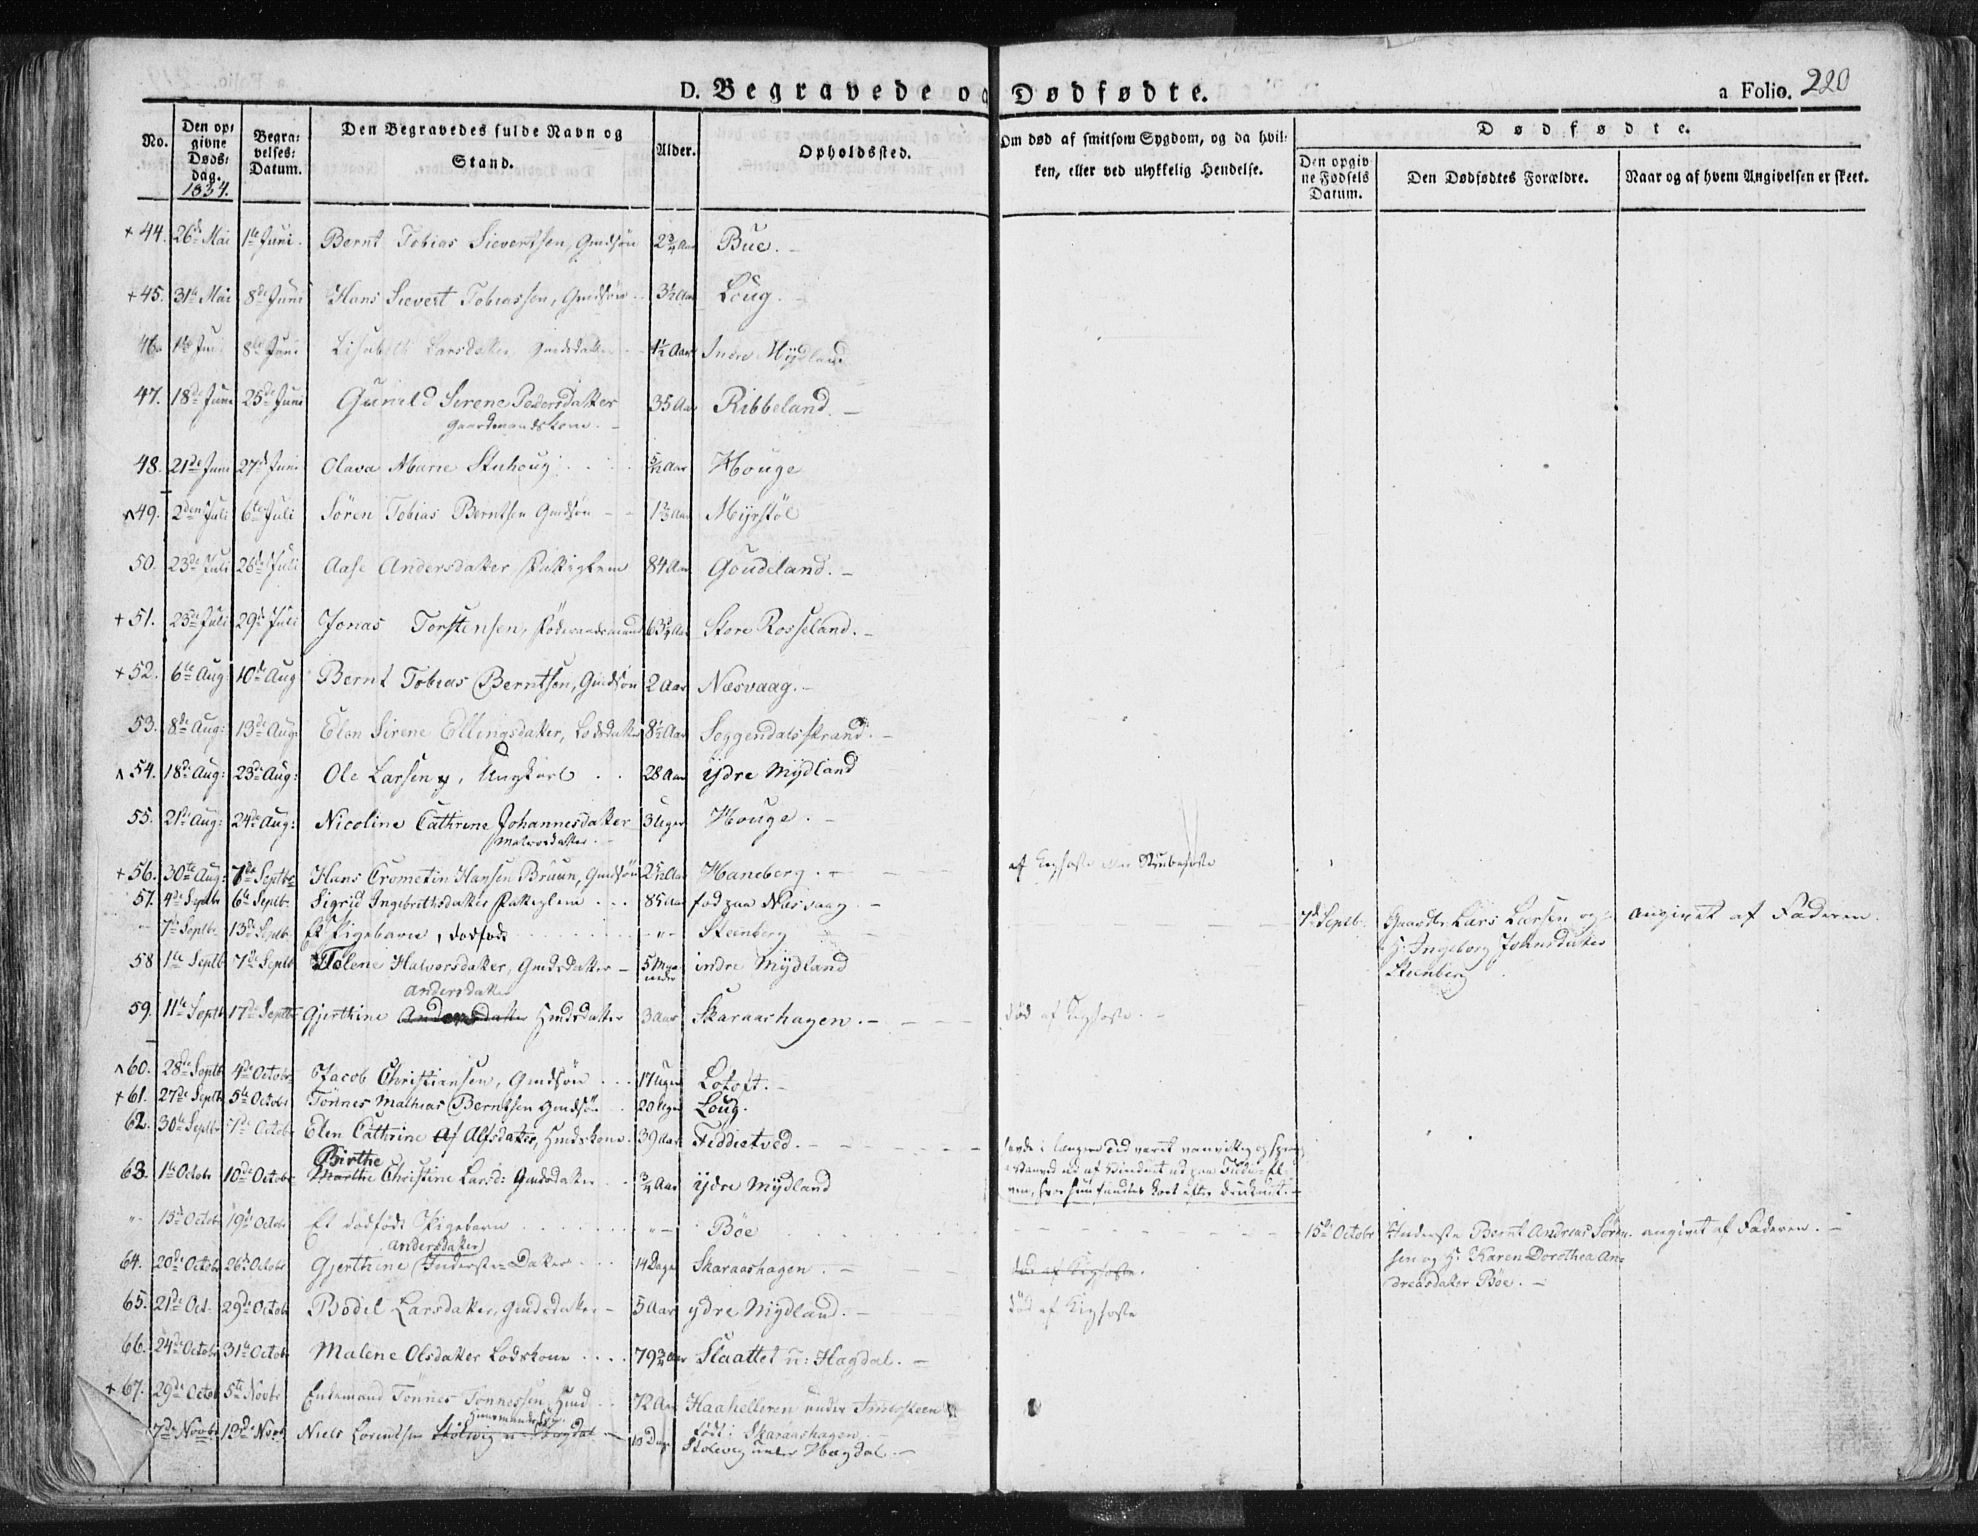 D. Begravede og Dødfødte.
a Folio. 220
No.
Den opgivne Døds: dag. 1834.
Begra: velses: Datum.
Den Begravedes fulde Navn og Stand.
Alder.
Opholdssted.
Om død af smitsom Sygdom, og da hvil: ken, eller ved ulykkelig Hendelse.
Dødfødte.
Den opgiv ne Fødsels Datum.
Den Dødfødtes Forældre.
Naar og af hvem Angivelsen er skeet.
+ 44. 26de Mai 1te Juni. Bernt Tobias Sievertsen, Gmdsøn 2¾ Aar Bue. -
+ 45. 31te Mai 8de Juni Hans Sievert Tobiassen, Gmdsøn 3½ Aar Loug. -
46. 1te Juni 8de Juni Lisabeth Larsdatter, Gmdsdatter 1½ Aar Indre Mydland
47. 18de Juni 25de Juni Gunild Sirene Pedersdatter 35 Aar Ribbeland. -
Gaardmandskone. -
48. 21de Juni 27de Juni Olava Marie Stuhoug 5/12 Aar Houge
49. 2den Juli 6te Juli Sören Tobias Berntsen Gmdsøn - - Aar Myrstöl
50. 23de Juli 26de Juli Aase Andersdatter, Fattiglem 84 Aar Goudeland. -
+ 51. 25de Juli 29de Juli Jonas Torstensen, Föderaadsmand 63¾ Aar Store Rosseland. -
+ 52. 6te Aug 10de Aug Bernt Tobias Berntsen, Gmdsøn 2 Aar Næsvaag. -
53. 8de Aug: 13de Aug: Elen Sirene Ellingsdatter, Lodsdatter 8½ Aar Soggendalsstrand. -
54. 18de Aug: 23de Aug: Ole Larsen, Ungkarl . . 28 Aar ydre Mydland
55. 21de Aug: 24de Aug: Nicoline Cathrine Johannesdatter 3 Uger Houge. -
Matrosdatter. -
+ 56. 30te Aug: 7de Septbr Hans Crometin Hansen Bruun, Gmdsøn Aar Haneberg. - af Kighoste eller Strubehoste
57. 4de Septbr 6te Septbr. Sigrid Ingebrethsdatter Fattiglem . . . 85 Aar fød paa Næsvaag -
" 7de Septbr 13de Septbr Et Pigebarn, dødfødt - " - Steenberg 7de Septb. Gaardbr. Lars Larsen og angivet af Faderen.
H. Ingeborg Johnsdatter
Steenberg
58 1te Septb 7de Septb Tolene Halvorsdatter, Gmdsdatter - 5 Maa neder indre Mydland
Andersdatter
59. 11te Septb 17de Septb Gjerthine Andersdatter Hmdsdatter 3 Aar Skaraashagen. - død af Kighoste. -
60. 28de Septb 4de Octobr Jacob Christiansen, Gmdsøn . . . 17 Uger Lotoft. -
+ 61. 27de Septb 5te Octobr Tönnes Mathias Berntsen Gmdsøn . . 20 Uger Loug.
62. 30te Septbr 7de Octobr Elen Cathrine Alfsdatter, Hmdskone. 39 Aar Fiddietved. -
havde i længere Tid været vanvittig og
Birthe
63. 1te Octobr 10de Octobr Marthe Christine Larsd: Gmdsdatter . . ¾ Aar ydre Mydland
" 15de Octobr 19de Octobr Et dödfödt Pigebarn " Böe 15de Octobr Inderste Bernt Andreas Sören- angivet af Faderen. -
sen og H. Karen Dorothea An-
dreasdatter Böe. -
Andersdatter
64. 20de Octobr 26de Octobr Gjerthine Inderste-Datter 14 Dage Skaraashagen. - død af Kighoste.
65. 21de Oct. 29de Octobr Bodil Larsdatter, Gmdsdatter - 5 Aar ydre Mydland. - død af Kighoste
66. 24de Octobr 31te Octob Malene Olsdatter Lodskone . . . . 79¾ Aar Slaattet u: Hagdal. -
+ 67. 29de Octob 5te Novbr Enkemand Tönnes Tönnessen, Hmd . . 72 Aar Haahelleren under Immersteen
Huusmandssøn.
7de Novbr 13de Novbr Niels Lorentsen Stolevig u: Hægdal - 10 Dage født: Skaraashagen. -
Stolevig under Hægdal. -